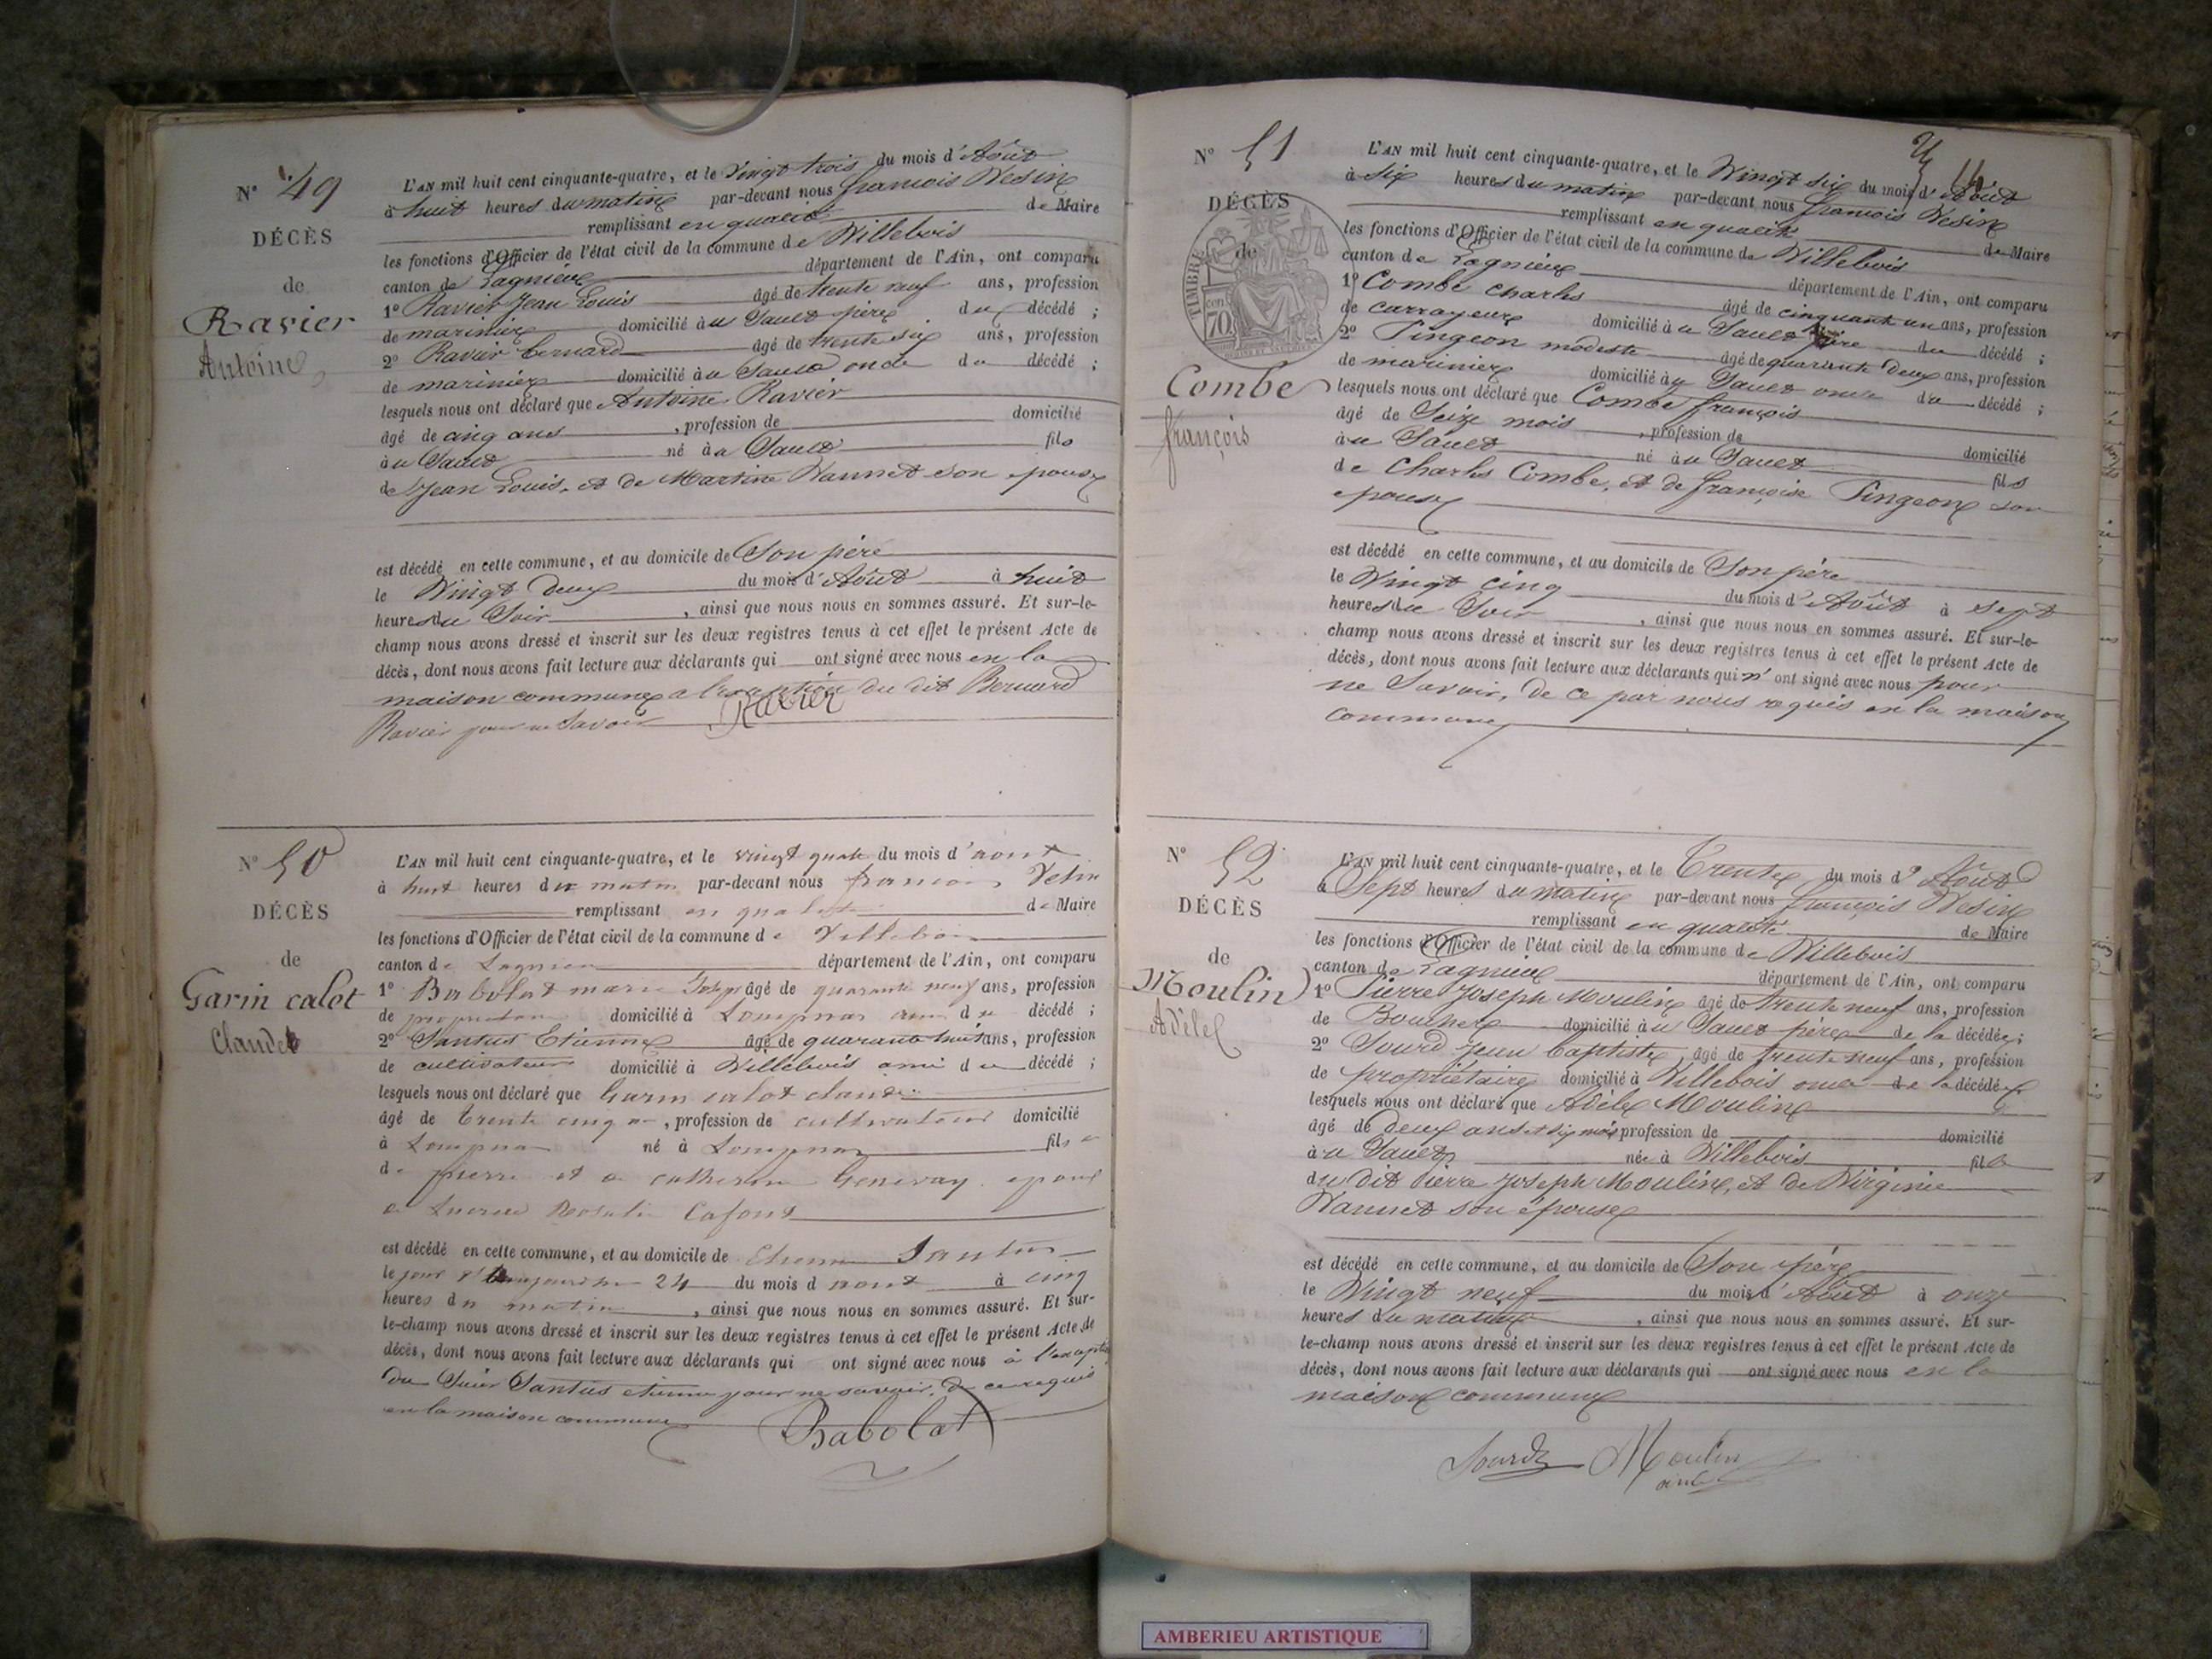 N° 49
DÉCÈS
de
Ravier
Antoine
L'AN mil huit cent cinquante-quatre, et le Vingt trois du mois d'Août
à huit heures du matin par-devant nous françois Vesin
remplissant en qualité de Maire
les fonctions d'Officier de l'état civil de la commune de Villebois
canton de Lagnieu département de l'Ain, ont comparu
1° Ravier Jean Louis âgé de trente neuf ans, profession
de marinier domicilié à u Sault père du décédé ;
2° Ravier bernard âgé de trente six ans, profession
de marinier domicilié à u Sault oncle du décédé ;
lesquels nous ont déclaré que Antoine Ravier
âgé de cinq ans , profession de domicilié
à u Sault né à u Sault fils
de Jean Louis, et de Martine Vannet son epouse
est décédé en cette commune, et au domicile de Son père
le Vingt Deux du mois d'Août à huit
heures du Soir , ainsi que nous nous en sommes assuré. Et sur-le-
champ nous avons dressé et inscrit sur les deux registres tenus à cet effet le présent Acte de
décès, dont nous avons fait lecture aux déclarants qui ont signé avec nous en la
maison commune a l'exception du dit Bernard
Ravier pour ne Savoir Ravier
N° 50
DÉCÈS
de
Garin calot
Claude
L'AN mil huit cent cinquante-quatre, et le vingt quatre du mois d'aout
à huit heures du matin par-devant nous françois Vesin
remplissant en qualité de Maire
les fonctions d'Officier de l'état civil de la commune de Villebois
canton de Lagnieu département de l'Ain, ont comparu
1° Babolat marie Joseph âgé de quarante neuf ans, profession
de proprietaire domicilié à Lompnas ami du décédé ;
2° Santus Etienne âgé de quarante huit ans, profession
de cultivateur domicilié à Villebois ami du décédé ;
lesquels nous ont déclaré que Garin calot claude
âgé de trente cinq an , profession de cultivateur domicilié
à Lompnas né à Lompnas fils
de pierre et de catherine Genevay epoux
de Rosalie Lafont
est décédé en cette commune, et au domicile de Etienne Santus
le jour d'aujourdhui 24 du mois d aout à cinq
heures du matin , ainsi que nous nous en sommes assuré. Et sur-
le-champ nous avons dressé et inscrit sur les deux registres tenus à cet effet le présent Acte de
décès, dont nous avons fait lecture aux déclarants qui ont signé avec nous à l'exception
du Sieur Santus etienne pour ne savoir, de ce requis
en la maison commune Babolat
N° 51
DÉCÈS
de
TIMBRE
70
Combe
françois
L'AN mil huit cent cinquante-quatre, et le Vingt six du mois d'Août
à six heures du matin par-devant nous françois Vesin
remplissant en qualité de Maire
les fonctions d'Officier de l'état civil de la commune de Villebois
canton de Lagnieu département de l'Ain, ont comparu
1° Combe charles âgé de cinquante un ans, profession
de carrayeur domicilié à u Sault père du décédé ;
2° Pingeon modeste âgé de quarante Deux ans, profession
de marinier domicilié à u Sault oncle du décédé ;
lesquels nous ont déclaré que Combe françois
âgé de Seize mois , profession de domicilié
à u Sault né à u Sault fils
de Charles Combe, et de françoise Pingeon son
epouse
est décédé en cette commune, et au domicile de Son père
le Vingt cinq du mois d'Août à sept
heures du Soir , ainsi que nous nous en sommes assuré. Et sur-le-
champ nous avons dressé et inscrit sur les deux registres tenus à cet effet le présent Acte de
décès, dont nous avons fait lecture aux déclarants qui n'ont signé avec nous pour
ne Savoir, de ce par nous requis en la maison
commune
N° 52
DÉCÈS
de
Moulin
Adèle
L'AN mil huit cent cinquante-quatre, et le Trente du mois d'Août
à Sept heures du matin par-devant nous françois Vesin
remplissant en qualité de Maire
les fonctions d'Officier de l'état civil de la commune de Villebois
canton de Lagnieu département de l'Ain, ont comparu
1° Pierre Joseph Moulin âgé de trente neuf ans, profession
de Boucher domicilié à u Sault père de la décédée ;
2° Sourd Jean baptiste âgé de trente neuf ans, profession
de propriétaire domicilié à Villebois oncle de la décédée
lesquels nous ont déclaré que Adèle Moulin
âgé de deux ans et six mois profession de domicilié
à u Sault née à Villebois fille
du dit Pierre Joseph Moulin, et de Virginie
Vannet son épouse
est décédé en cette commune, et au domicile de Son père
le Vingt neuf du mois d'Août à onze
heures du matin , ainsi que nous nous en sommes assuré. Et sur-
le-champ nous avons dressé et inscrit sur les deux registres tenus à cet effet le présent Acte de
décès, dont nous avons fait lecture aux déclarants qui ont signé avec nous en la
maison commune
Sourd Moulin
AMBERIEU ARTISTIQUE